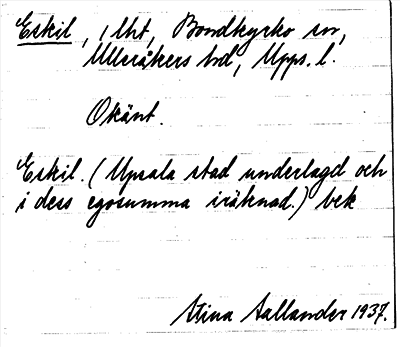 Eskil, 1 lht, Bondkyrko sn,
Ulleråkers hd, Upps. l.
Okänt.
Eskil. (Upsala stad underlagd och
i dess egosumma iräknad.) bek
Stina Sallander 1937.